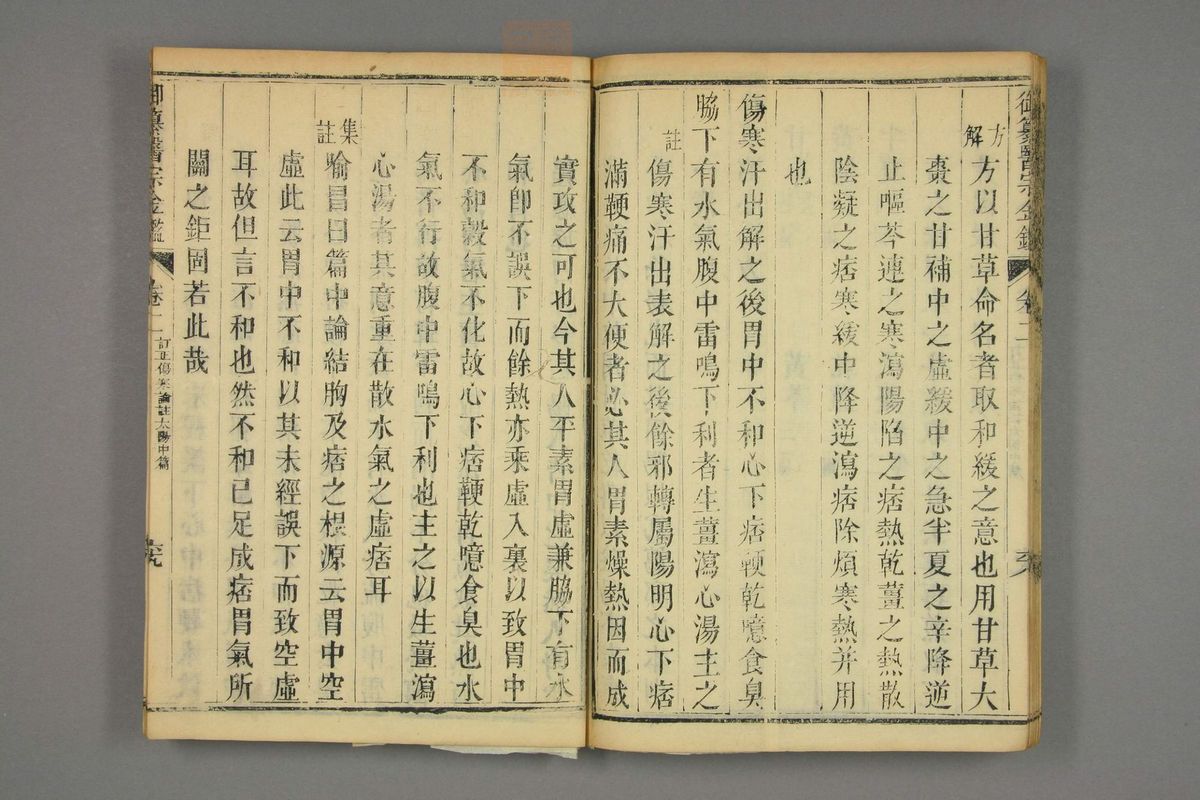 御纂醫宗金鑑 卷二 六八
方解
方以甘草命名者取和緩之意也用甘草大
棗之甘補中之虛緩中之急半夏之辛降逆
止嘔芩連之寒瀉陽陷之痞熱乾薑之熱散
陰凝之痞寒緩中降逆瀉痞除煩寒熱并用
也
傷寒汗出解之後胃中不和心下痞鞕乾噫食臭
脇下有水氣腹中雷鳴下利者生薑瀉心湯主之
註
傷寒汗出表解之後餘邪轉屬陽明心下痞
滿鞕痛不大便者必其人胃素燥熱因而成
實攻之可也今其人平素胃虛兼脇下有水
氣即不誤下而餘熱亦乘虛入裏以致胃中
不和穀氣不化故心下痞鞕乾噫食臭也水
氣不行故腹中雷鳴下利也主之以生薑瀉
心湯者其意重在散水氣之虛痞耳
集註
喻昌曰篇中論結胸及痞之根源云胃中空
虛此云胃中不和以其未經誤下而致空虛
耳故但言不和也然不和已足成痞胃氣所
關之鉅固若此哉
御纂醫宗金鑑 卷二 訂正傷寒論註太陽中篇 六九